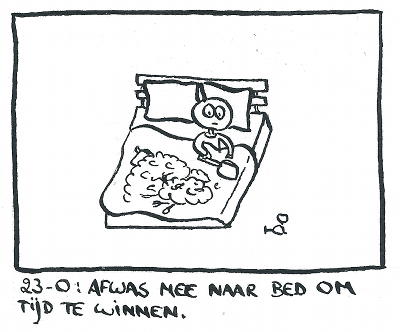 23-0: AFWAS MEE NAAR BED OM
TIJD TE WINNEN.